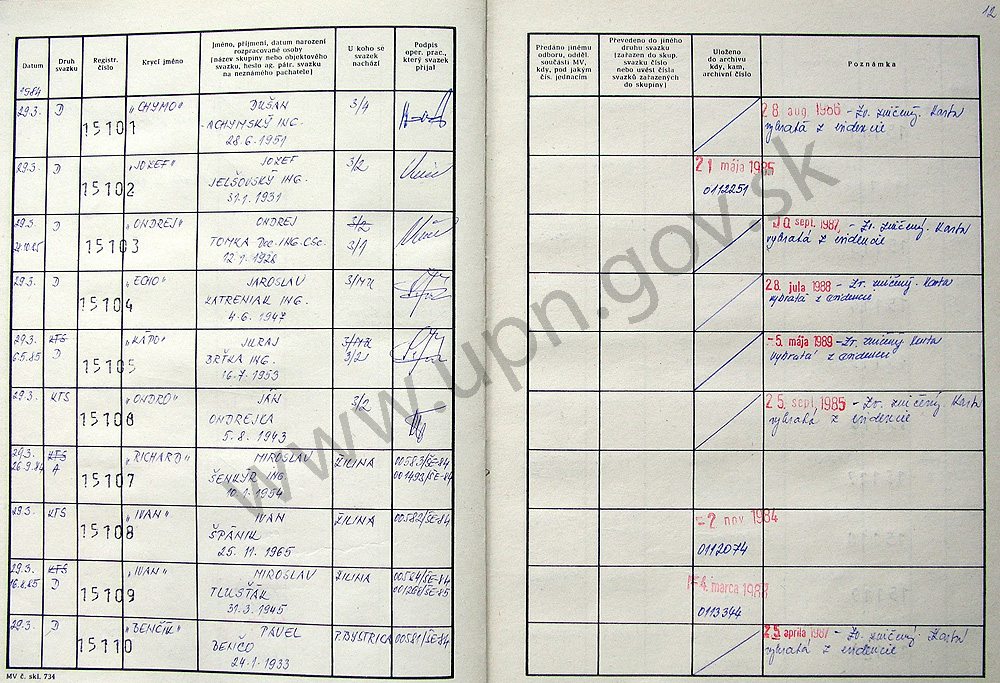 12
Datum
Druh svazku
Registr. číslo
Krycí jméno
Jméno, příjmení, datum narození rozpracované osoby (název skupiny nebo objektového svazku, heslo ag. pátr. svazku na neznámého pachatele)
U koho se svazek nachází
Podpis oper. prac., který svazek přijal
Předáno jinému odboru, odděl. součásti MV, kdy, pod jakým čís. jednacím
Převedeno do jiného druhu svazku (zařazen do skup. svazku číslo nebo uvést čísla svazků zařazených do skupiny)
Uloženo do archivu kdy, kam, archivní číslo
Poznámka
1984
29.3. D 15101 "CHYMO" DUŠAN 3/4
ACHYMSKÝ ING.
28.6.1951
28 aug. 1986 - Zv. zničený. Karta
vybratá z evidencie
29.3. D 15102 "JOZEF" JOZEF 3/2
JELŠOVSKÝ ING.
31.1.1931
21 mája 1985
0112251
29.3. D 15103 "ONDREJ" ONDREJ 3/2
TOMKA Doc. ING. CSc. 3/1
sept. 1987 - Zv. zničený. Karta
vybratá z evidencie
29.3. D 15104 "ECHO" JAROSLAV
KATRENIAK ING.
4.6.1947
28. júla 1988 - Zv. zničený. Karta
vybratá z evidencie
29.3. KTS 15105 "KÁPO" JURAJ
6.5.85 D BRŤKA ING. 3/2
16.7.1953
-5. mája 1989 - Zv. zničený Karta
vybratá z evidencie
29.3. KTS 15106 "ONDRO" JÁN 3/2
ONDREJKA
5.8.1943
25. sept. 1985 - Zv. zničený. Karta
vybratá z evidencie
29.3. KTS 15107 "RICHARD" MIROSLAV ŽILINA 00583/ŠE-84
26.9.84 A ŠENKÝR ING. 001493/ŠE-84
10.1.1954
29.3. KTS 15108 "IVAN" IVAN ŽILINA 00582/ŠE-84
ŠPÁNIK
25.11.1965
-2 nov. 1984
0112074
29.3. KTS 15109 "IVAN" MIROSLAV ŽILINA 00584/ŠE-84
D TLUŠŤÁK
31.3.1945
-4. marca
0113344
29.3. D 15110 "BENČÍK" PAVEL P. BYSTRICA 00581/ŠE-84
BENČO
24.1.1933
25 apríla 1987 - Zv. zničený Karta
vybratá z evidencie
MV č. skl. 734
www.upn.gov.sk